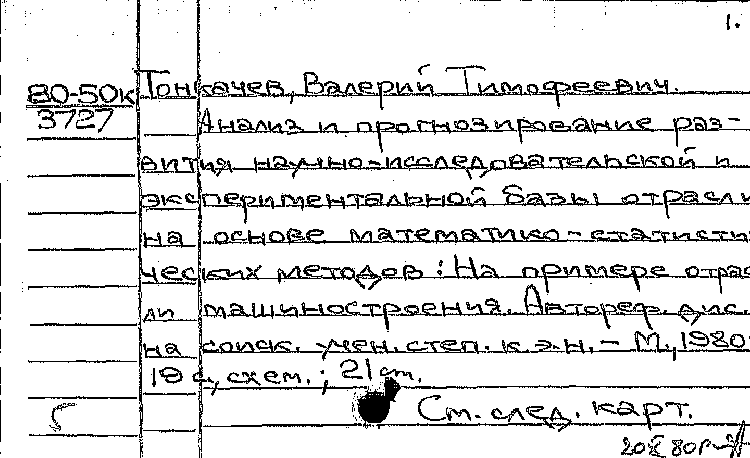 1.
80-50к Тонкачев, Валерий Тимофеевич.
3727 Анализ и прогнозирование раз-
вития научно-исследовательской и
экспериментальной базы отрасли
на основе математико-статисти-
ческих методов: На примере отрас-
ли машиностроения. Автореф. дис.
на соиск. учен. степ. к.э.н. - М., 1980.
19 с., схем.; 21 cm.
См. след. карт.